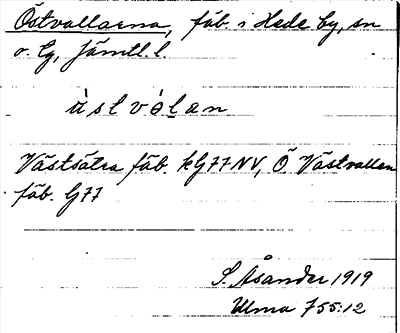 Östvallarna, fäb. i Hede by, sn
o. tg, Jämtl. l.
ùs l vàḷan
Västsätra fäb. kG77NV, Ö Västvallen
fäb. G77
S. Åsander 1919
Ulma 755:12